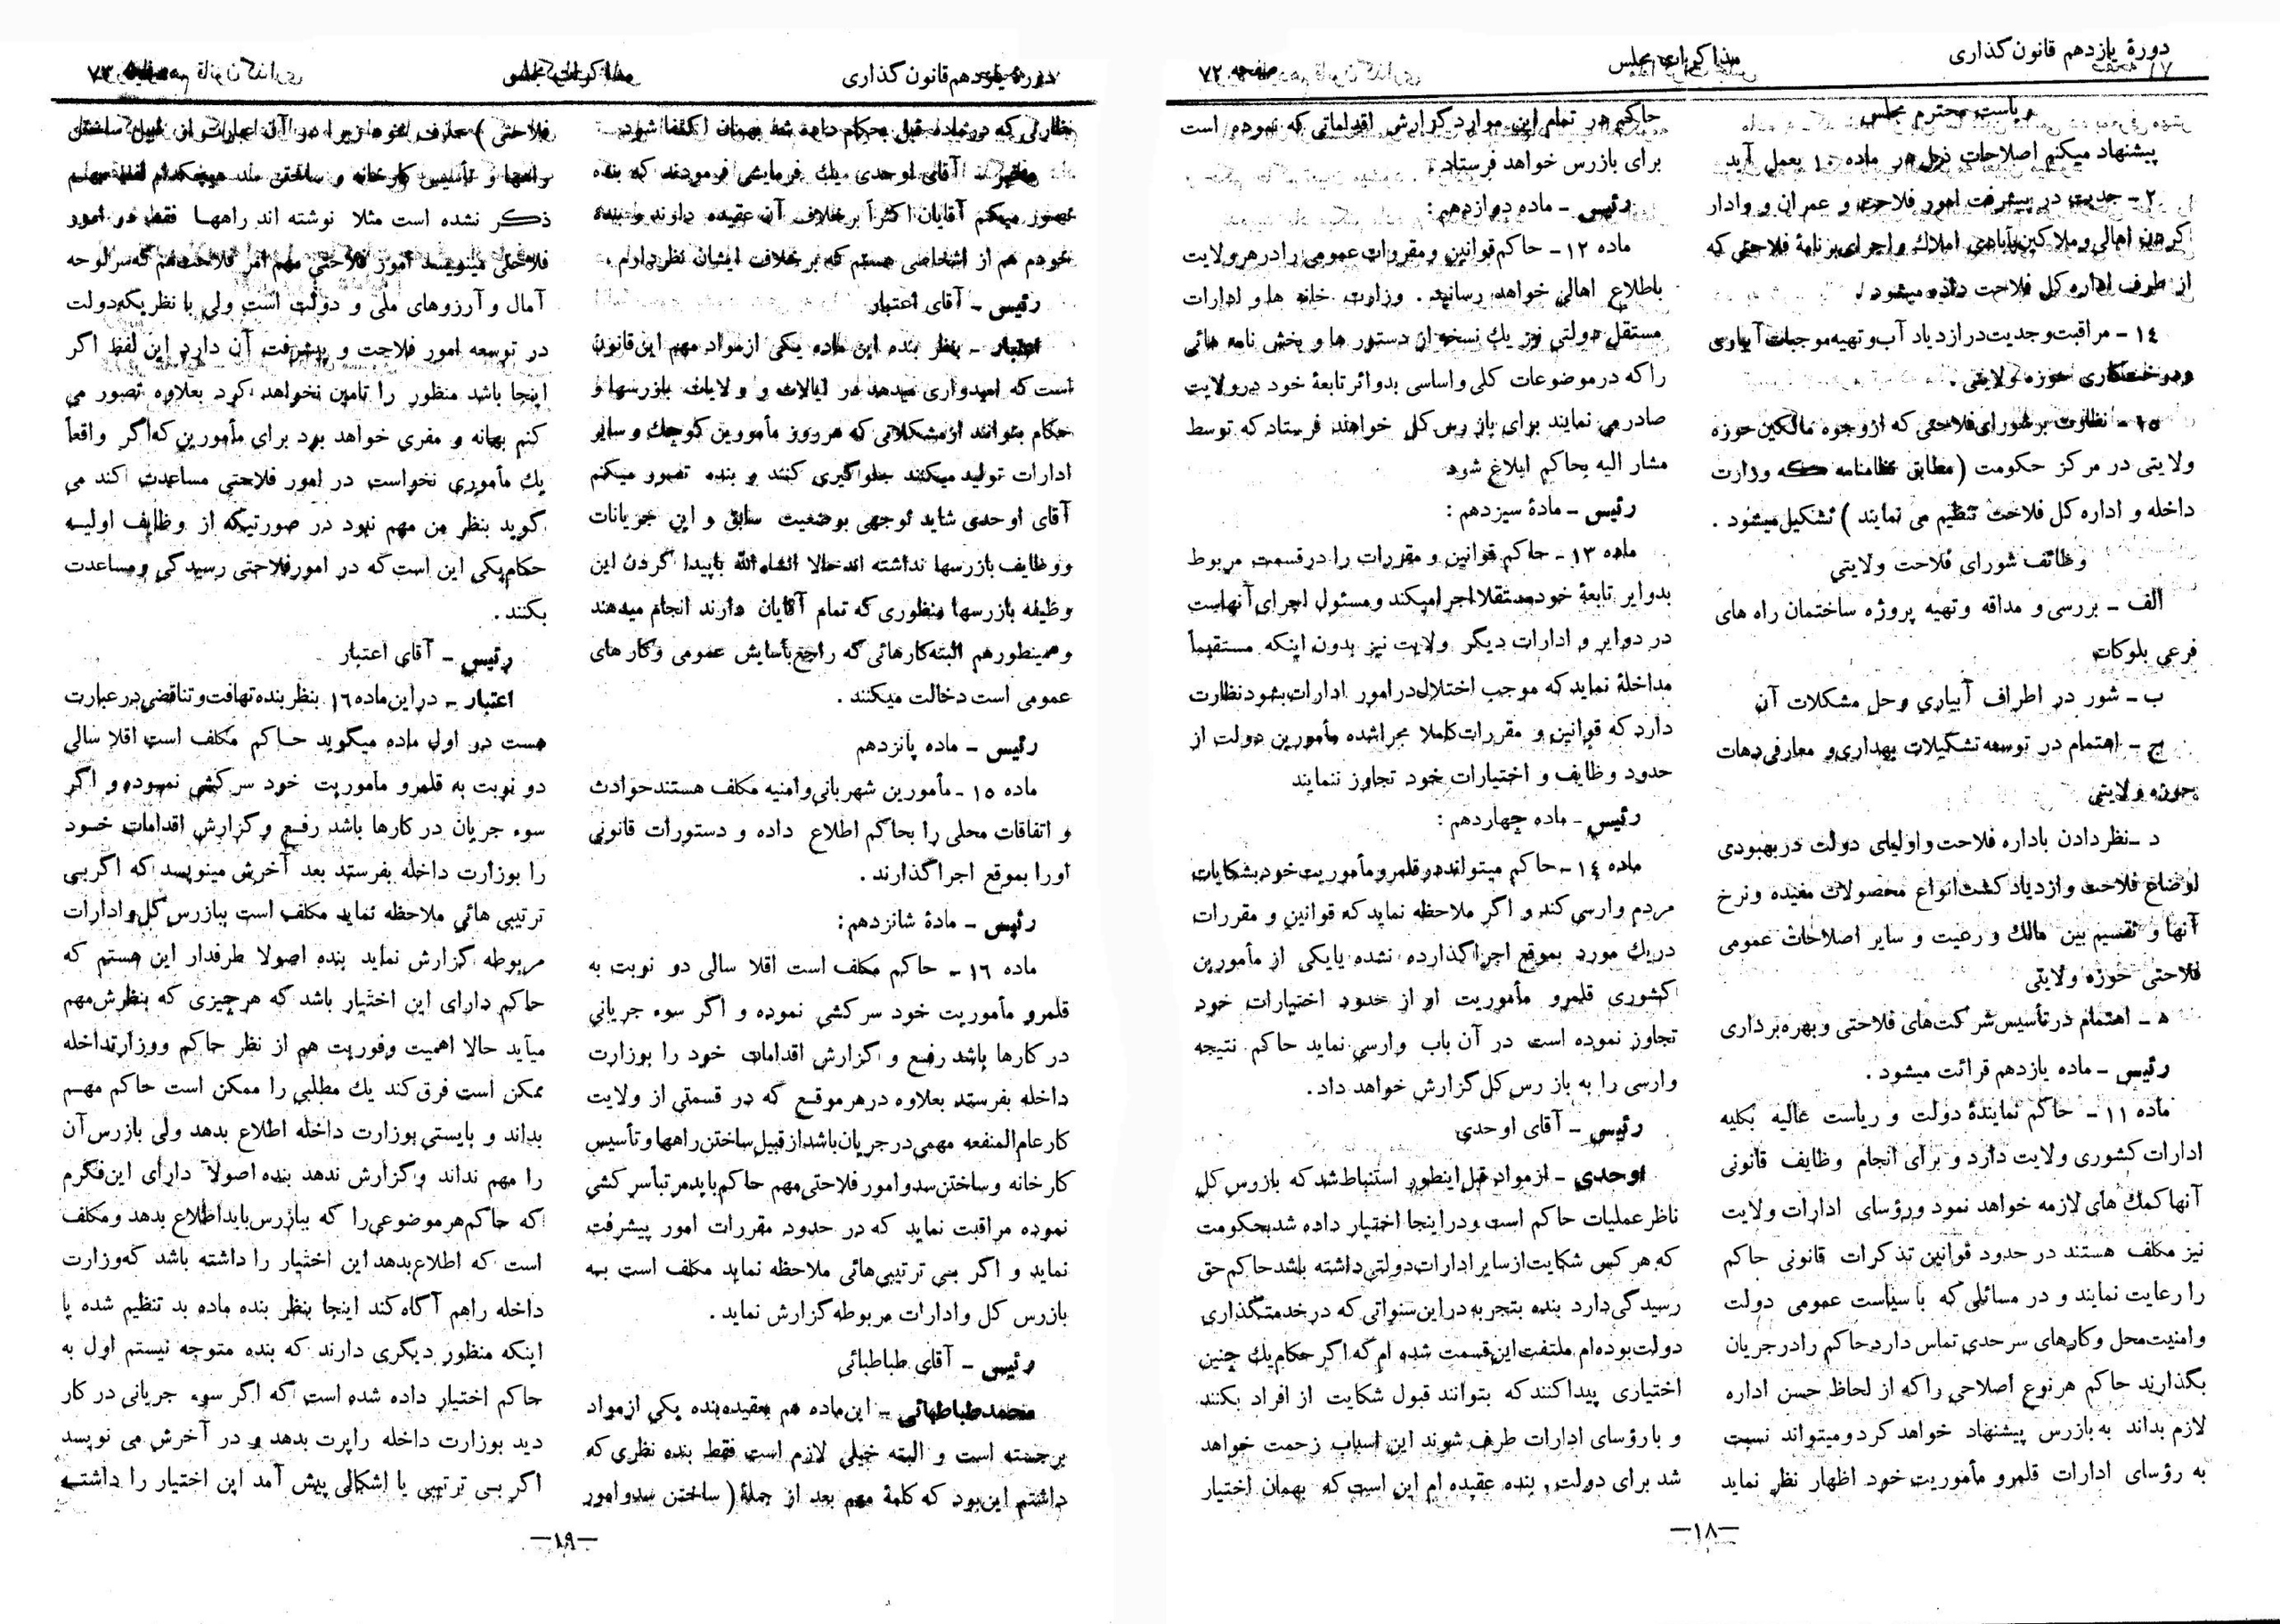 دورهٔ یازدهم قانون‌گذاری
مذاکرات مجلس
صفحه ۷۲
ریاست محترم مجلس
پیشنهاد میکنم اصلاحات ذیل در ماده ۱۰ بعمل آید
۲ - جدیت در پیشرفت امور فلاحت و عمران و وادار
کردن اهالی و ملاکین بآبادی املاك و اجرای برنامهٔ فلاحتی که
از طرف اداره کل فلاحت داده میشود.
۱٤ - مراقبت و جدیت در ازدیاد آب و تهیه موجبات آبیاری
ودرختکاری حوزه ولایتی.
۱۵ - نظارت بر شورای فلاحتی که از وجوه مالکین حوزه
ولایتی در مرکز حکومت (مطابق نظامنامه که وزارت
داخله و اداره کل فلاحت تنظیم می نمایند) تشکیل میشود.
وظائف شورای فلاحت ولایتی
الف - بررسی و مداقه و تهیه پروژه ساختمان راه های
فرعی بلوکات
ب - شور در اطراف آبیاری و حل مشکلات آن
ج - اهتمام در توسعه تشکیلات بهداری و معارفی دهات
حوزه ولایتی
د - نظر دادن باداره فلاحت و اولیای دولت در بهبودی
اوضاع فلاحت و ازدیاد کشت انواع محصولات مفیده و نرخ
آنها و تقسیم بین مالك و رعیت و سایر اصلاحات عمومی
فلاحتی حوزه ولایتی
ه - اهتمام در تأسیس شرکت‌های فلاحتی و بهره‌برداری
رئیس - ماده یازدهم قرائت میشود.
ماده ۱۱ - حاکم نمایندهٔ دولت و ریاست عالیه بکلیه
ادارات کشوری ولایت دارد و برای انجام وظایف قانونی
آنها کمك های لازمه خواهد نمود ورؤسای ادارات ولایت
نیز مکلف هستند در حدود قوانین تذکرات قانونی حاکم
را رعایت نمایند و در مسائلی که با سیاست عمومی دولت
وامنیت محل و کارهای سرحدی تماس دارد حاکم را در جریان
بگذارند حاکم هر نوع اصلاحی را که از لحاظ حسن اداره
لازم بداند به بازرس پیشنهاد خواهد کرد و میتواند نسبت
به رؤسای ادارات قلمرو مأموریت خود اظهار نظر نماید
حاکم در تمام این موارد گزارش اقداماتی که نموده است
برای بازرس خواهد فرستاد.
رئیس - ماده دوازدهم:
ماده ۱۲ - حاکم قوانین و مقررات عمومی را در هر ولایت
باطلاع اهالی خواهد رسانید. وزارت خانه ها و ادارات
مستقل دولتی نیز یك نسخه از دستور ها و بخش نامه هائی
را که در موضوعات کلی و اساسی بدوائر تابعهٔ خود در ولایت
صادر می نمایند برای باز رس کل خواهند فرستاد که توسط
مشار الیه بحاکم ابلاغ شود
رئیس - مادهٔ سیزدهم:
ماده ۱۳ - حاکم قوانین و مقررات را در قسمت مربوط
بدوایر تابعهٔ خود مستقلا اجرا میکند و مسئول اجرای آنهاست
در دوایر و ادارات دیگر ولایت نیز بدون اینکه مستقیماً
مداخلهٔ نماید که موجب اختلال در امور ادارات بشود نظارت
دارد که قوانین و مقررات کاملا مجرا شده مأمورین دولت از
حدود وظایف و اختیارات خود تجاوز ننمایند
رئیس - ماده چهاردهم:
ماده ۱٤ - حاکم میتواند در قلمرو مأموریت خود بشکایات
مردم وارسی کند و اگر ملاحظه نماید که قوانین و مقررات
در یك مورد بموقع اجرا گذارده نشده یا یکی از مأمورین
کشوری قلمرو مأموریت او از حدود اختیارات خود
تجاوز نموده است در آن باب وارسی نماید حاکم نتیجه
وارسی را به باز رس کل گزارش خواهد داد.
رئیس - آقای اوحدی
اوحدی - از مواد قبل اینطور استنباط شد که بازرس کل
ناظر عملیات حاکم است و در اینجا اختیار داده شد بحکومت
که هر کس شکایت از سایر ادارات دولتی داشته باشد حاکم حق
رسیدگی دارد بنده بتجربه در این سنواتی که در خدمتگذاری
دولت بوده‌ام ملتفت این قسمت شده ام که اگر حکام یك چنین
اختیاری پیدا کنند که بتوانند قبول شکایت از افراد بکنند
و با رؤسای ادارات طرف شوند این اسباب زحمت خواهد
شد برای دولت, بنده عقیده ام این است که بهمان اختیار
-۱۸-
دورهٔ یازدهم قانون‌گذاری
مذاکرات مجلس
صفحه ۷۳
نظارتی که در مادهٔ قبل بحکام داده شد بهمان اکتفا شود.
مخبر - آقای اوحدی یك فرمایشی فرمودند که بنده
تصور میکنم آقایان اکثراً بر خلاف آن عقیده دارند و بنده
خودم هم از اشخاصی هستم که بر خلاف ایشان نظر دارم.
رئیس - آقای اعتبار
اعتبار - بنظر بنده این ماده یکی از مواد مهم این قانون
است که امیدواری میدهد در ایالات و ولایات بازرسها و
حکام بتوانند از مشکلاتی که هر روز مأمورین کوچك و سایر
ادارات تولید میکنند جلوگیری کنند و بنده تصور میکنم
آقای اوحدی شاید توجهی بوضعیت سابق و این جریانات
ووظایف بازرسها نداشته اند حالا انشاء الله با پیدا کردن این
وظیفه بازرسها منظوری که تمام آقایان دارند انجام میدهند
و همینطور هم البته کارهائی که راجع بآسایش عمومی و کارهای
عمومی است دخالت میکنند.
رئیس - ماده پانزدهم
ماده ۱۵ - مأمورین شهربانی و امنیه مکلف هستند حوادث
و اتفاقات محلی را بحاکم اطلاع داده و دستورات قانونی
اورا بموقع اجرا گذارند.
رئیس - مادهٔ شانزدهم:
ماده ۱٦ - حاکم مکلف است اقلا سالی دو نوبت به
قلمرو مأموریت خود سرکشی نموده و اگر سوء جریانی
در کارها باشد رفع و گزارش اقدامات خود را بوزارت
داخله بفرستد بعلاوه در هر موقع که در قسمتی از ولایت
کار عام المنفعه مهمی در جریان باشد از قبیل ساختن راهها و تأسیس
کارخانه و ساختن سد و امور فلاحتی مهم حاکم باید مرتباً سرکشی
نموده مراقبت نماید که در حدود مقررات امور پیشرفت
نماید و اگر بی ترتیبی‌هائی ملاحظه نماید مکلف است به
بازرس کل و ادارات مربوطه گزارش نماید.
رئیس - آقای طباطبائی
محمد طباطبائی - این ماده هم بعقیده بنده یکی از مواد
برجسته است و البته خیلی لازم است فقط بنده نظری که
داشتم این بود که کلمهٔ مهم بعد از جملهٔ (ساختن سد و امور
فلاحتی) حذف شود زیرا در آن عبارت از قبیل ساختن
راهها و تأسیس کارخانه و ساختن سد هیچکدام لفظ مهم
ذکر نشده است مثلا نوشته اند راهها فقط در امور
فلاحتی مینویسد امور فلاحتی مهم امر فلاحت هم که سرلوحه
آمال و آرزوهای ملی و دولت است ولی با نظریکه دولت
در توسعه امور فلاحت و پیشرفت آن دارد این لفظ اگر
اینجا باشد منظور را تامین نخواهد کرد بعلاوه تصور می
کنم بهانه و مفری خواهد بود برای مأمورین که اگر واقعاً
یك مأموری نخواست در امور فلاحتی مساعدت کند می
گوید بنظر من مهم نبود در صورتیکه از وظایف اولیه
حکام یکی این است که در امور فلاحتی رسیدگی و مساعدت
بکنند.
رئیس - آقای اعتبار
اعتبار - در این ماده ۱٦ بنظر بنده تهافت و تناقضی در عبارت
هست در اول ماده میگوید حاکم مکلف است اقلا سالی
دو نوبت به قلمرو مأموریت خود سرکشی نموده و اگر
سوء جریان در کارها باشد رفع و گزارش اقدامات خود
را بوزارت داخله بفرستد بعد آخرش مینویسد که اگر بی
ترتیبی هائی ملاحظه نماید مکلف است ببازرس کل و ادارات
مربوطه گزارش نماید بنده اصولا طرفدار این هستم که
حاکم دارای این اختیار باشد که هر چیزی که بنظرش مهم
میآید حالا اهمیت و فوریت هم از نظر حاکم و وزارتداخله
ممکن است فرق کند یك مطلبی را ممکن است حاکم مهم
بداند و بایستی بوزارت داخله اطلاع بدهد ولی بازرس آن
را مهم نداند و گزارش ندهد بنده اصولاً دارای این فکرم
که حاکم هر موضوعی را که ببازرس باید اطلاع بدهد و مکلف
است که اطلاع بدهد این اختیار را داشته باشد که وزارت
داخله را هم آگاه کند اینجا بنظر بنده ماده بد تنظیم شده یا
اینکه منظور دیگری دارند که بنده متوجه نیستم اول به
حاکم اختیار داده شده است که اگر سوء جریانی در کار
دید بوزارت داخله راپرت بدهد و در آخرش می نویسد
اگر بی ترتیبی یا اشکالی پیش آمد این اختیار را داشته
-۱۹-